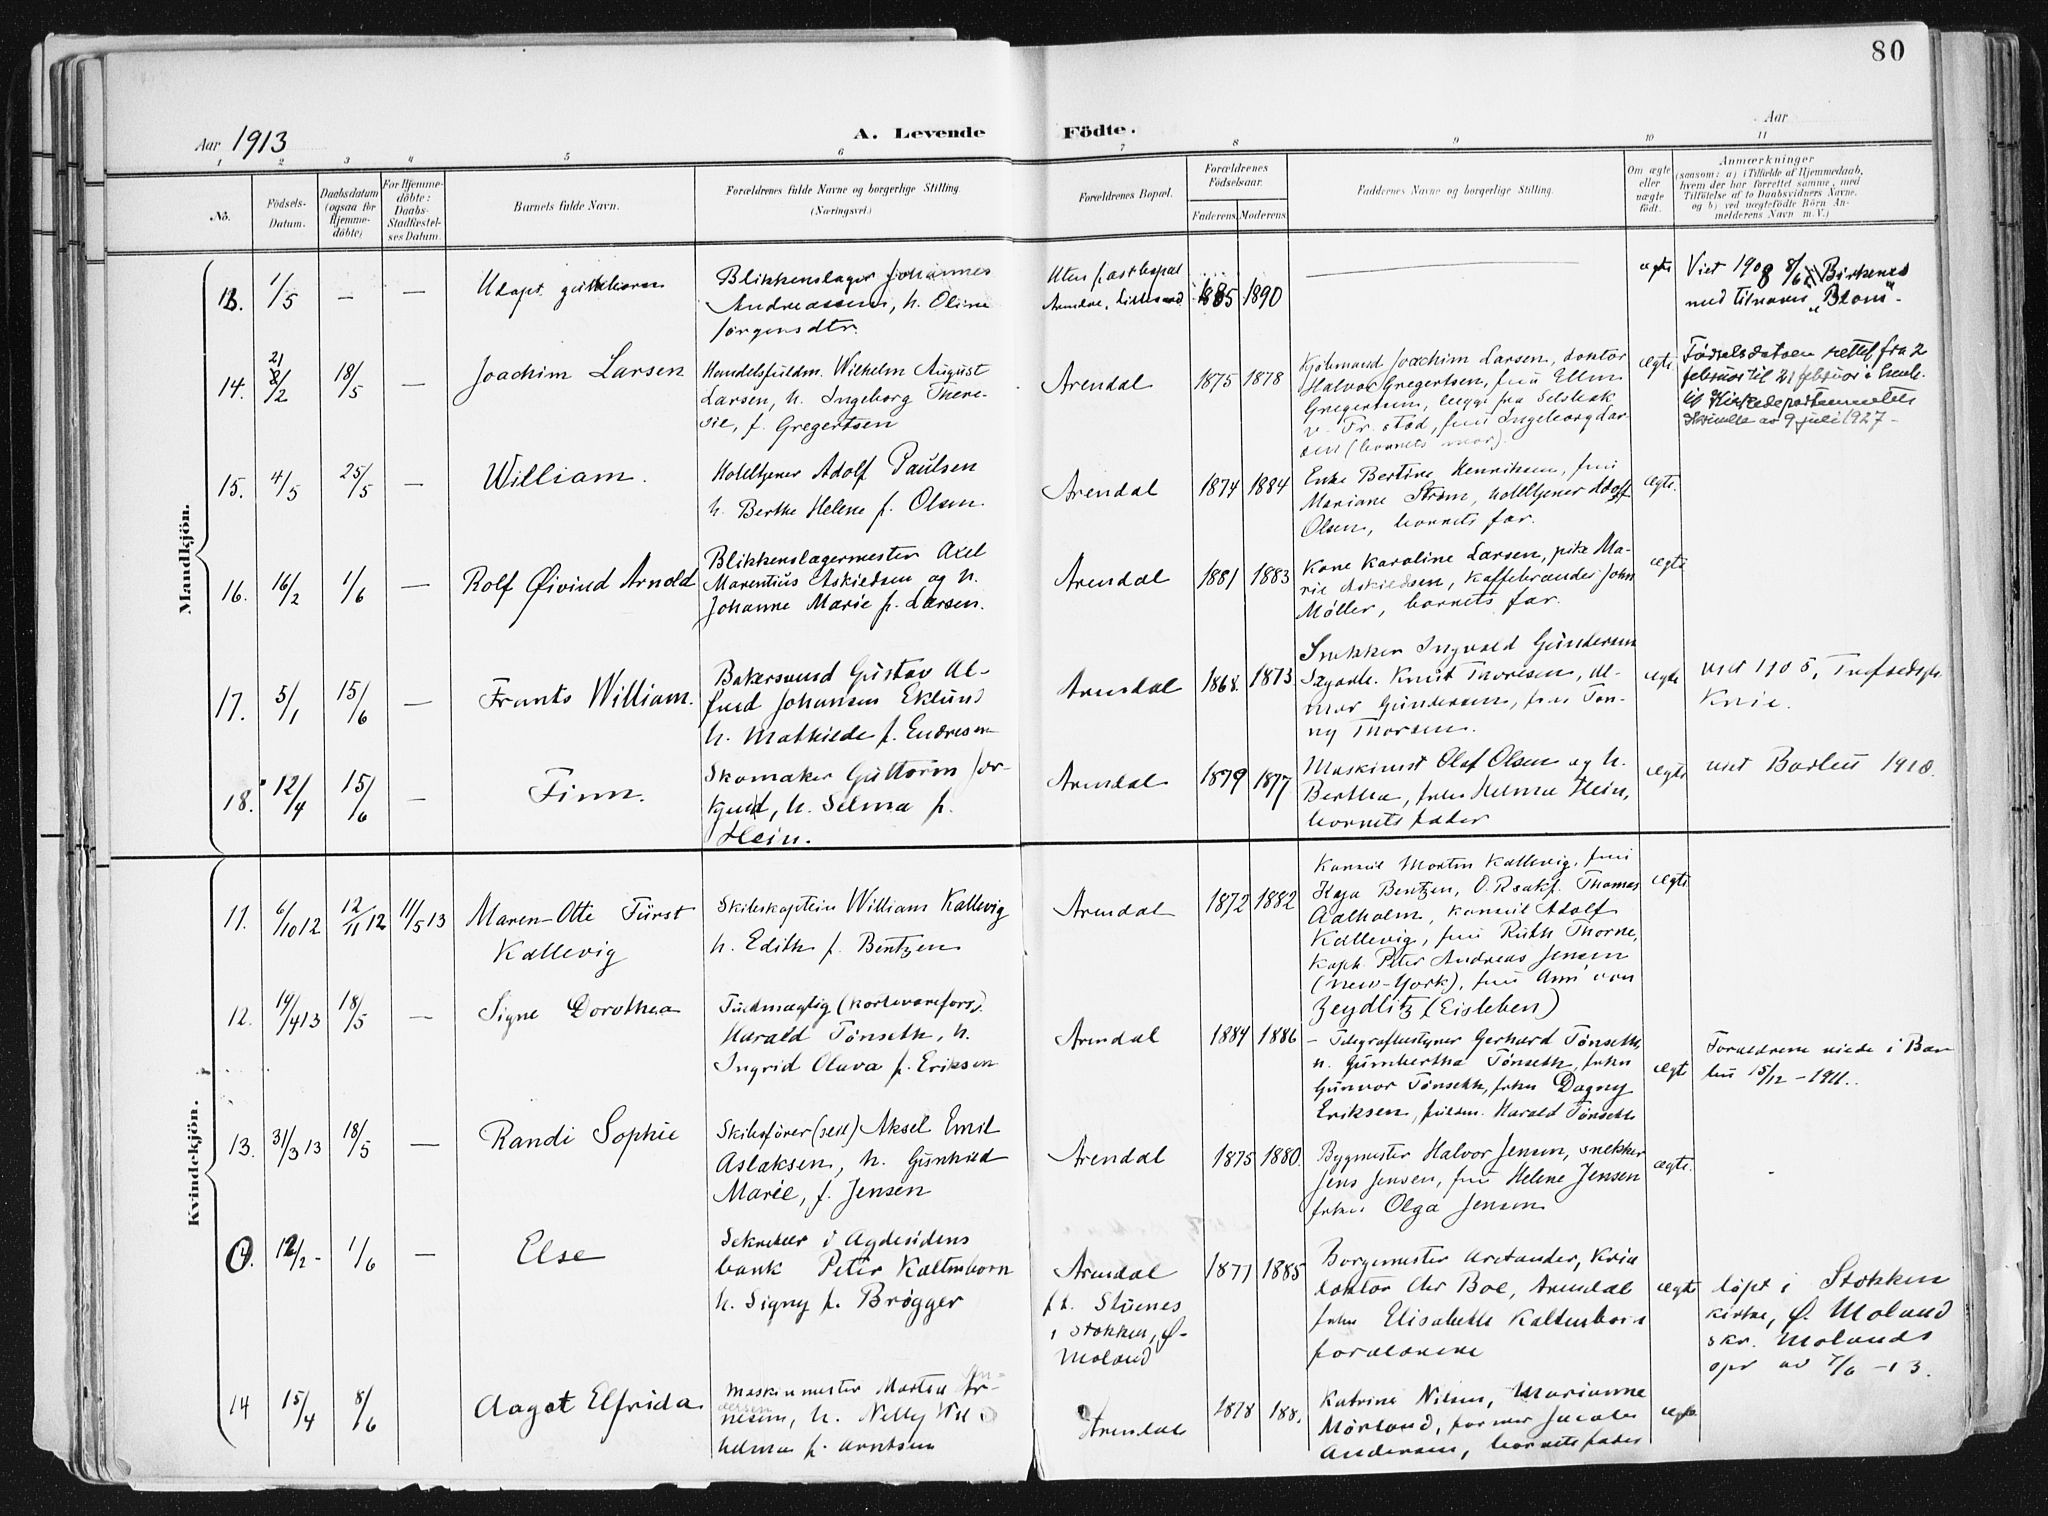 80
Aar 1913
A. Levende
Födte.
Aar
1 2 3 4 5 6 7 8 9 10 11
No.
Födsels-
Datum.
Daabsdatum
(ogsaa for
Hjemme-
döbte)
For Hjemme-
döbte:
Daabs-
Stadfæstel-
ses Datum.
Barnets fulde Navn.
Forældrenes fulde Navne og borgerlige Stilling.
(Næringsvei.)
Forældrenes Bopæl.
Forældrenes
Födselsaar.
Faderens. Moderens.
Faddernes Navne og borgerlige Stilling.
Om ægte
eller
uægte
födt.
Anmærkninger
(saasom: a) i Tilfælde af Hjemmedaab,
hvem der har forrettet samme, med
Tilföielse af to Daabsvidners Navne.
og b) ved uægtefödte Börn An-
melderens Navn m. V.)
Mandkjön.
13. 1/5 — —
Udøpt guttebarn
Blikkenslager Johannes
Andreassen, h. Oline
Jørgensdtr.
Uten fast bopæl
Arendal, Lillesand
1885 1890
ægte
Viet 1908 8/6 i Birkenes
med tilnavn „Blom“
14. 21/2 18/5 —
Joachim Larsen
Handelsfuldm. Wilhelm August
Larsen, h. Ingeborg There-
sie, f. Gregertsen
Arendal
1875 1878
Kjøbmand Joachim Larsen, doktor
Halvor Gregertsen, fru Ellen
Gregertsen,
fru Ingeborg Lar-
sen (barnets mor).
ægte
Fødselsdatoen rettet fra 2
februar til 21 februar i henh.
til Kirkedepartementets
skrivelse av 9 juli 1927 -
15. 4/5 25/5 —
William.
Hoteltjener Adolf Paulsen
h. Berthe Helene f. Olsen.
Arendal
1874 1884
Enke Bertine Henriksen, fru
Mariane Strøm, hoteltjener Adolf
Olsen, barnets far.
ægte.
16. 16/2 1/6 —
Rolf Øivind Arnold
Blikkenslagermester Axel
Marentius Askildsen og h.
Johanne Marie f. Larsen.
Arendal
1881 1883
Kone Karoline Larsen, pike Ma-
rie Askildsen, Kaffebrænder John
Møller, barnets far.
ægte
17. 5/1 15/6 —
Frants William.
Bakersvend Gustav Al-
fred Johansen Eklund
h. Mathilde f. Endresen
Arendal
1868. 1873
Snekker Ingvald Gundersen
Sagarb. Knut Thoresen, Al-
mar Gundersen, frk. Jen-
ny Thorsen.
ægte
viet 1905,
18. 12/4 15/6 —
Finn.
Skomaker Guttorm
h. Selma f.
Hein.
Arendal
1879 1877
Maskinist Olaf Olsen og h.
Bertha, frk. Helma Hein,
barnets fader
ægte
viet Barbu 1910.
Kvindekjön.
11. 6/10 12 12/11 12 11/5 13
Maren-Otti Fürst
Kallevig
Skibskaptein William Kallevig
h. Edith f. Bentzen
Arendal
1872 1882
Konsul Morten Kallevig, fru
Kaja Bentzen, O.R.sakf. Thomas
Aalholm, konsul Adolf
Kallevig, fru Ruth Thorne,
Kapt. Peter Andreas Jensen
(New-York), fru Anni von
Zeydlitz (Eisleben)
ægte
12. 14/4 13 18/5 —
Signe Dorothea
Fuldmægtig (kortevareforr.)
Harald Tönseth, h.
Ingrid Olava f. Eriksen
Arendal
1884 1886
- Telegrafbestyrer Gerhard Tönseth,
h. Gumbertha Tönseth, frkn
Gunvor Tönseth, frkn Dagny
Eriksen, fuldm. Harald Tönseth
ægte
Forældrene viede i Bar-
bu 15/12 - 1911.
13. 31/3 13 18/5 —
Randi Sophie
Skibsfører (seil) Aksel Emil
Aslaksen, h. Gunhild
Marie, f. Jensen
Arendal
1875 1880.
Bygmester Halvor Jensen, snekker
Jens Jensen, fru Helene Jensen
frkn. Olga Jensen
ægte.
14. 12/2 - 1/6 —
Else
Sekretær i Agdesidens
bank Peter Kaltenborn
h. Signy f. Brøgger
Arendal
f.t. Stuenes
i Stokken, Ø-
Moland
1877 1885
Borgemester Arctander,
doktor Chr Boe, Arendal
frkn Elisabeth Kaltenborn
forældrene
ægte
døpt i Stokken
kirke, Ø. Moland
skr. Molands
spr av 7/6 - 13.
14 15/4 8/6
Aagot Elfrida
Maskinmester Morten Ar-
nesen, h. Nelly Wil-
helma f. Arntsen
Arendal
1878 188.
Katrine Nilsen, Marianne
Mørland, former Jacob
Andersen, barnets fader
ægte